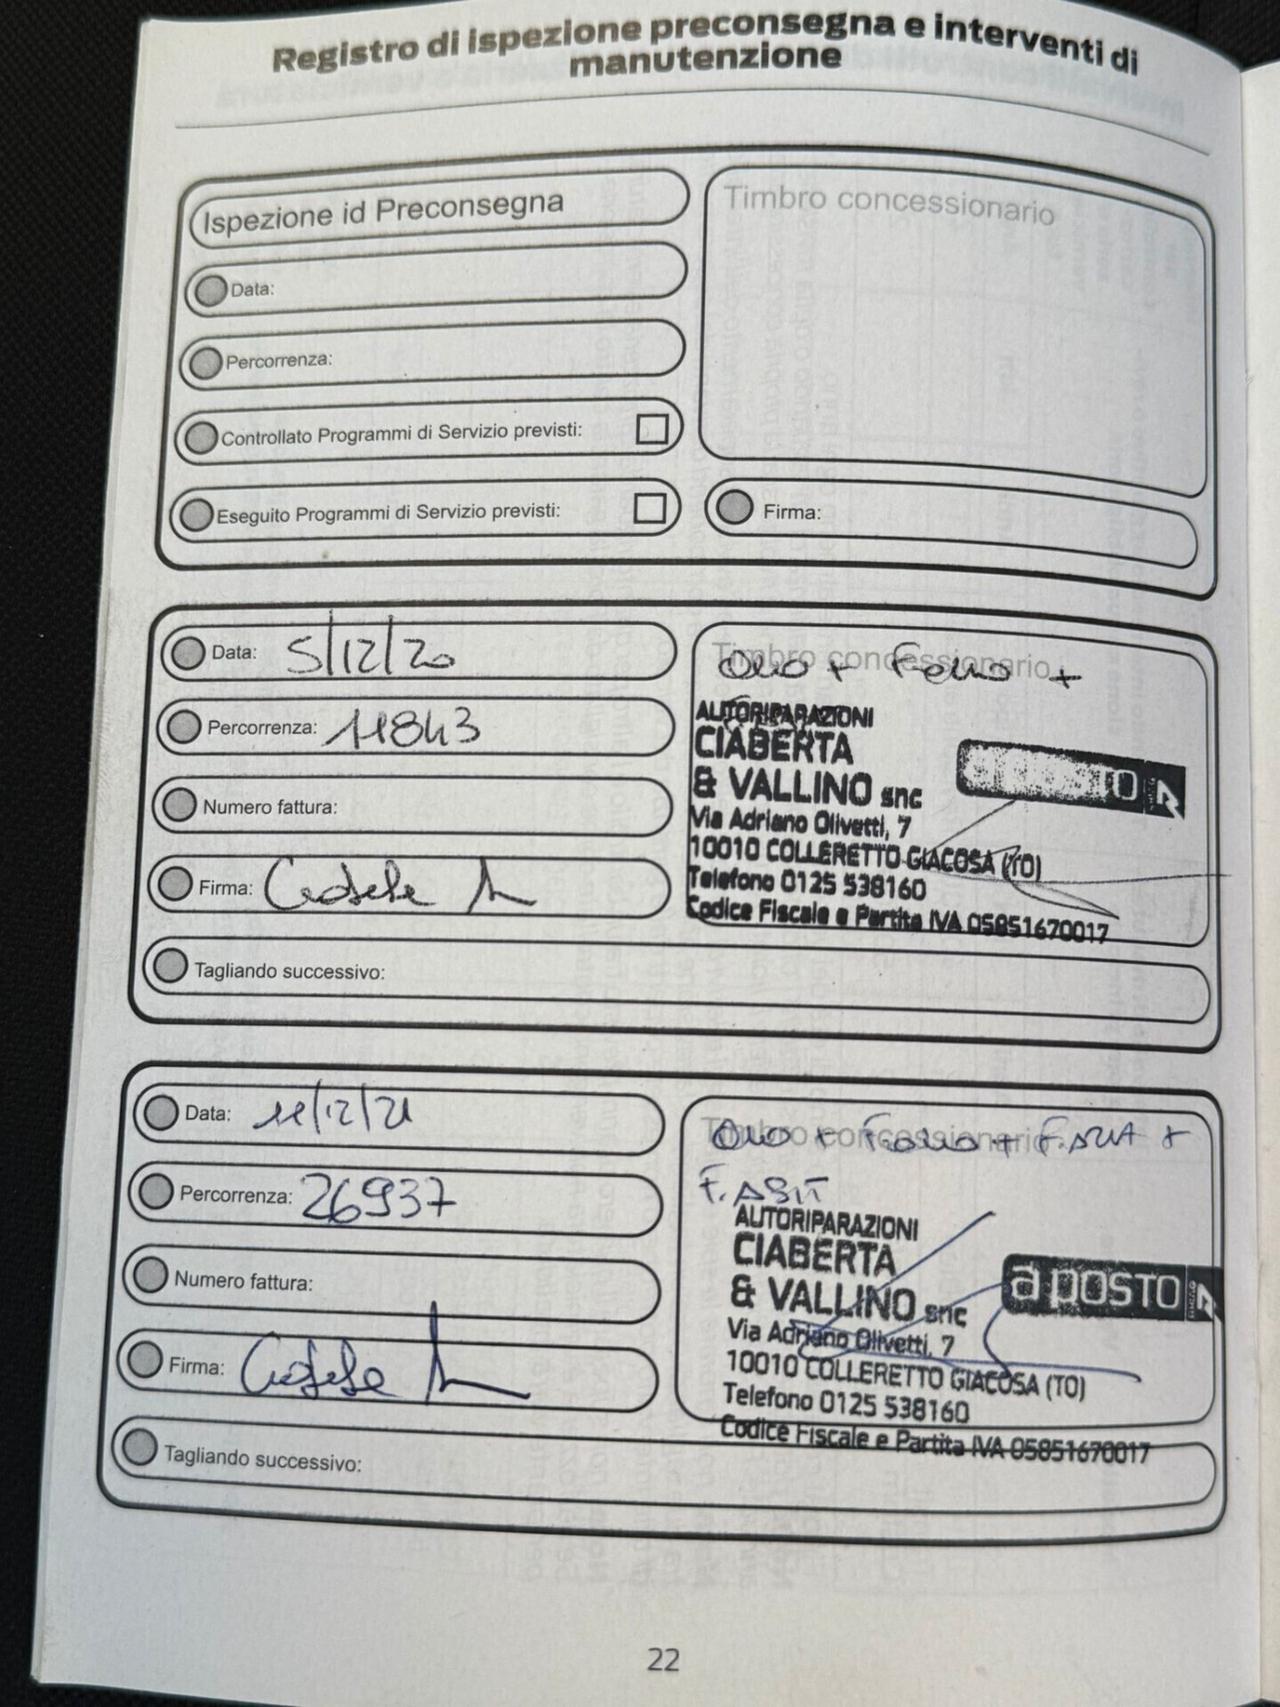 Registro di ispezione preconsegna e interventi di
manutenzione
Ispezione id Preconsegna
Data:
Percorrenza:
Controllato Programmi di Servizio previsti:
Eseguito Programmi di Servizio previsti:
Timbro concessionario
Firma:
Data: 5/12/20
Percorrenza: 11843
Numero fattura:
Firma:
Tagliando successivo:
Timbro concessionario
Olio + +
AUTORIPARAZIONI
CIABERTA
& VALLINO snc
Via Adriano Olivetti, 7
10010 COLLERETTO GIACOSA (TO)
Telefono 0125 538160
Codice Fiscale e Partita IVA 05851670017
a posto
Data: 11/12/21
Percorrenza: 26937
Numero fattura:
Firma:
Tagliando successivo:
Timbro concessionario
Olio + + F. ARIA +
F. ABIT
AUTORIPARAZIONI
CIABERTA
& VALLINO snc
Via Adriano Olivetti, 7
10010 COLLERETTO GIACOSA (TO)
Telefono 0125 538160
Codice Fiscale e Partita IVA 05851670017
a posto
22